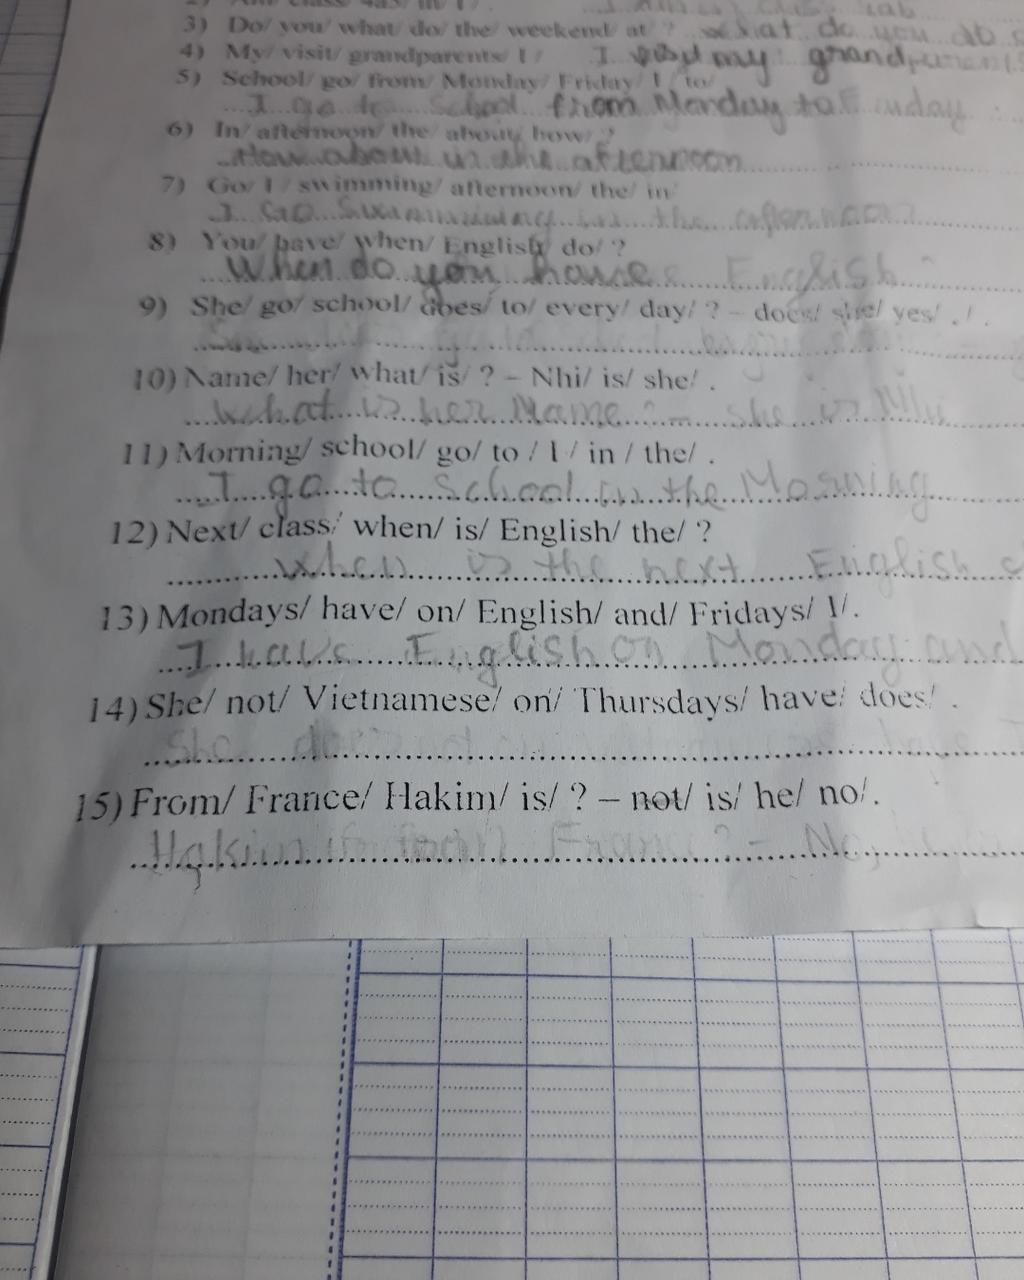 3) Do/ you/ what/ do/ the/ weekend/ at/ ? what do you do
4) My/ visit/ grandparents/ I / I my grandparents
5) School/ go/ from/ Monday/ Friday/ I / to/
I go to School from Monday to
6) In/ afternoon/ the/ about/ how/ ?
How about in the afternoon
7) Go/ I / swimming/ afternoon/ the/ in/
I Go in the afternoon
8) You/ have/ when/ English/ do/ ?
When do you have English ?
9) She/ go/ school/ does/ to/ every/ day/ ? – does/ she/ yes/ . / .
10) Name/ her/ what/ is/ ? – Nhi/ is/ she/ .
What is her Name ? – She is Nhi
11) Morning/ school/ go/ to / I / in / the/ .
I go to School in the Morning
12) Next/ class/ when/ is/ English/ the/ ?
When is the next English c
13) Mondays/ have/ on/ English/ and/ Fridays/ I/.
I have English on Monday and
14) She/ not/ Vietnamese/ on/ Thursdays/ have/ does/ .
She does
15) From/ France/ Hakim/ is/ ? – not/ is/ he/ no/.
Hakim is from France ? – No,